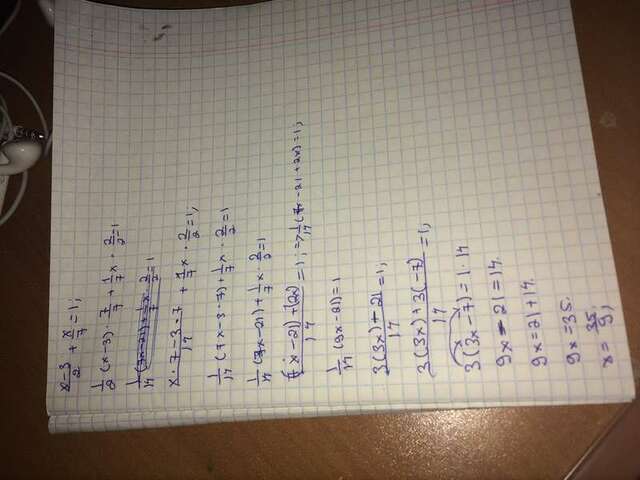 x-3/2 + x/7 = 1;
1/2 (x-3) · 7/7 + 1/7 x · 2/2 = 1
x·7-3·7/14 + 1/7 x · 2/2 = 1;
1/14 (7x-3·7) + 1/7 x · 2/2 = 1
1/14 (7x-21) + 1/7 x · 2/2 = 1
(7·x-21)+(2x)/14 = 1; => 1/14 (7x-21+2x) = 1;
1/14 (9x-21) = 1
3(3x)+21/14 = 1;
3(3x)+3(-7)/14 = 1;
3(3x-7) = 1·14
9x-21 = 14.
9x = 21+14.
9x = 35.
x = 35/9;